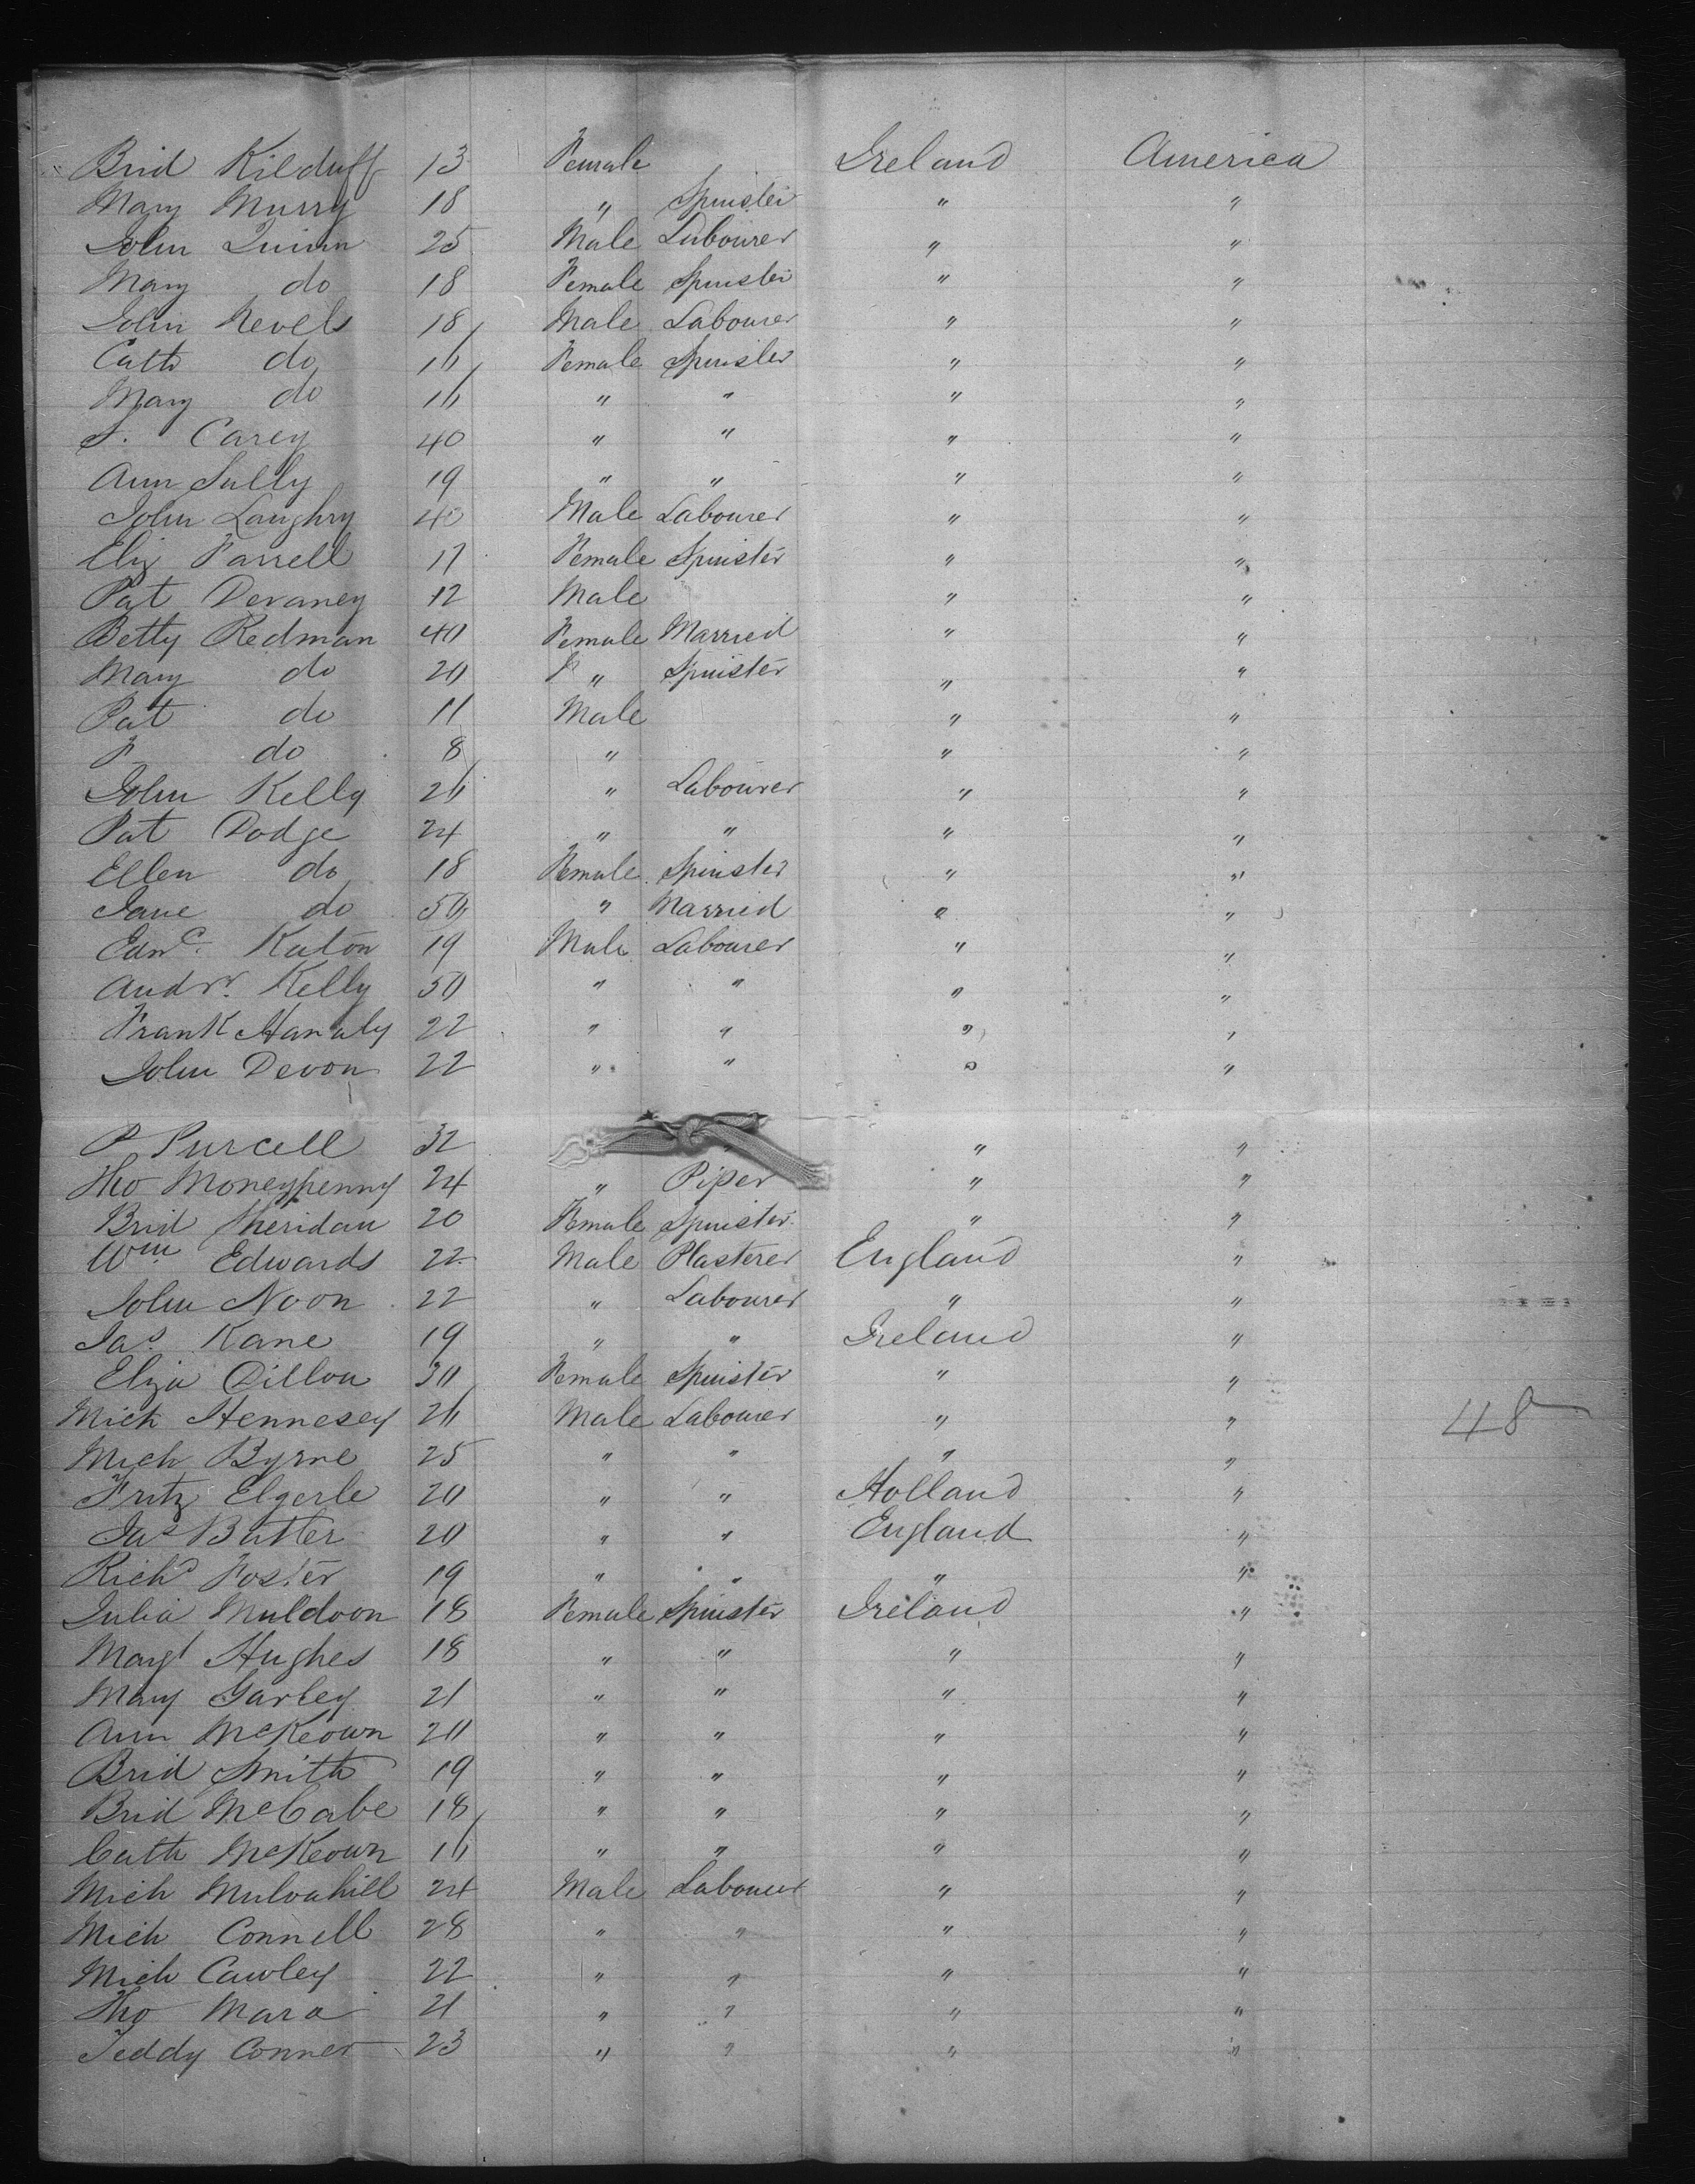 Brid Kilduff 13 Female Ireland America
Mary Murry 18 " Spinster " "
John Quinn 25 Male Labourer " "
Mary do 18 Female Spinster " "
John Nevels 18 Male Labourer " "
Cath do 16 Female Spinster " "
Mary do 16 " " " "
S. Carey 40 " " " "
Ann Sully 19 " " " "
John Laughry 40 Male Labourer " "
Eliz Farrell 17 Female Spinster " "
Pat Devaney 12 Male " "
Betty Redman 40 Female Married " "
Mary do 20 " Spinster " "
Pat do 11 Male " "
F do 8 " " "
John Kelly 26 " Labourer " "
Pat Dodge 24 " " " "
Ellen do 18 Female Spinster " "
Jane do 50 " Married " "
Edwd. Katon 19 Male Labourer " "
Andw. Kelly 50 " " " "
Frank Hanaly 22 " " " "
John Devon 22 " " " "
P Purcell 32 " "
Tho Moneypenny 24 " Piper " "
Brid Sheridan 20 Female Spinster " "
Wm Edwards 22 Male Plasterer England "
John Noon 22 " Labourer " "
Jas. Kane 19 " " Ireland "
Eliza Dillon 30 Female Spinster " "
Mich Hennesey 26 Male Labourer " " 48
Mich Byrne 25 " " " "
Fritz Elgerle 20 " " Holland "
Jas Butler 20 " " England "
Richd Foster 19 " " " "
Julia Muldoon 18 Female Spinster Ireland "
Margt Hughes 18 " " " "
Mary Garley 21 " " " "
Ann McKeown 20 " " " "
Brid Smith 19 " " " "
Brid McCabe 18 " " " "
Cath McKeown 16 " " " "
Mich Mulvahill 24 Male Labourer " "
Mich Connell 28 " " " "
Mich Cawley 22 " " " "
Tho Mara 21 " " " "
Teddy Conner 23 " " " "